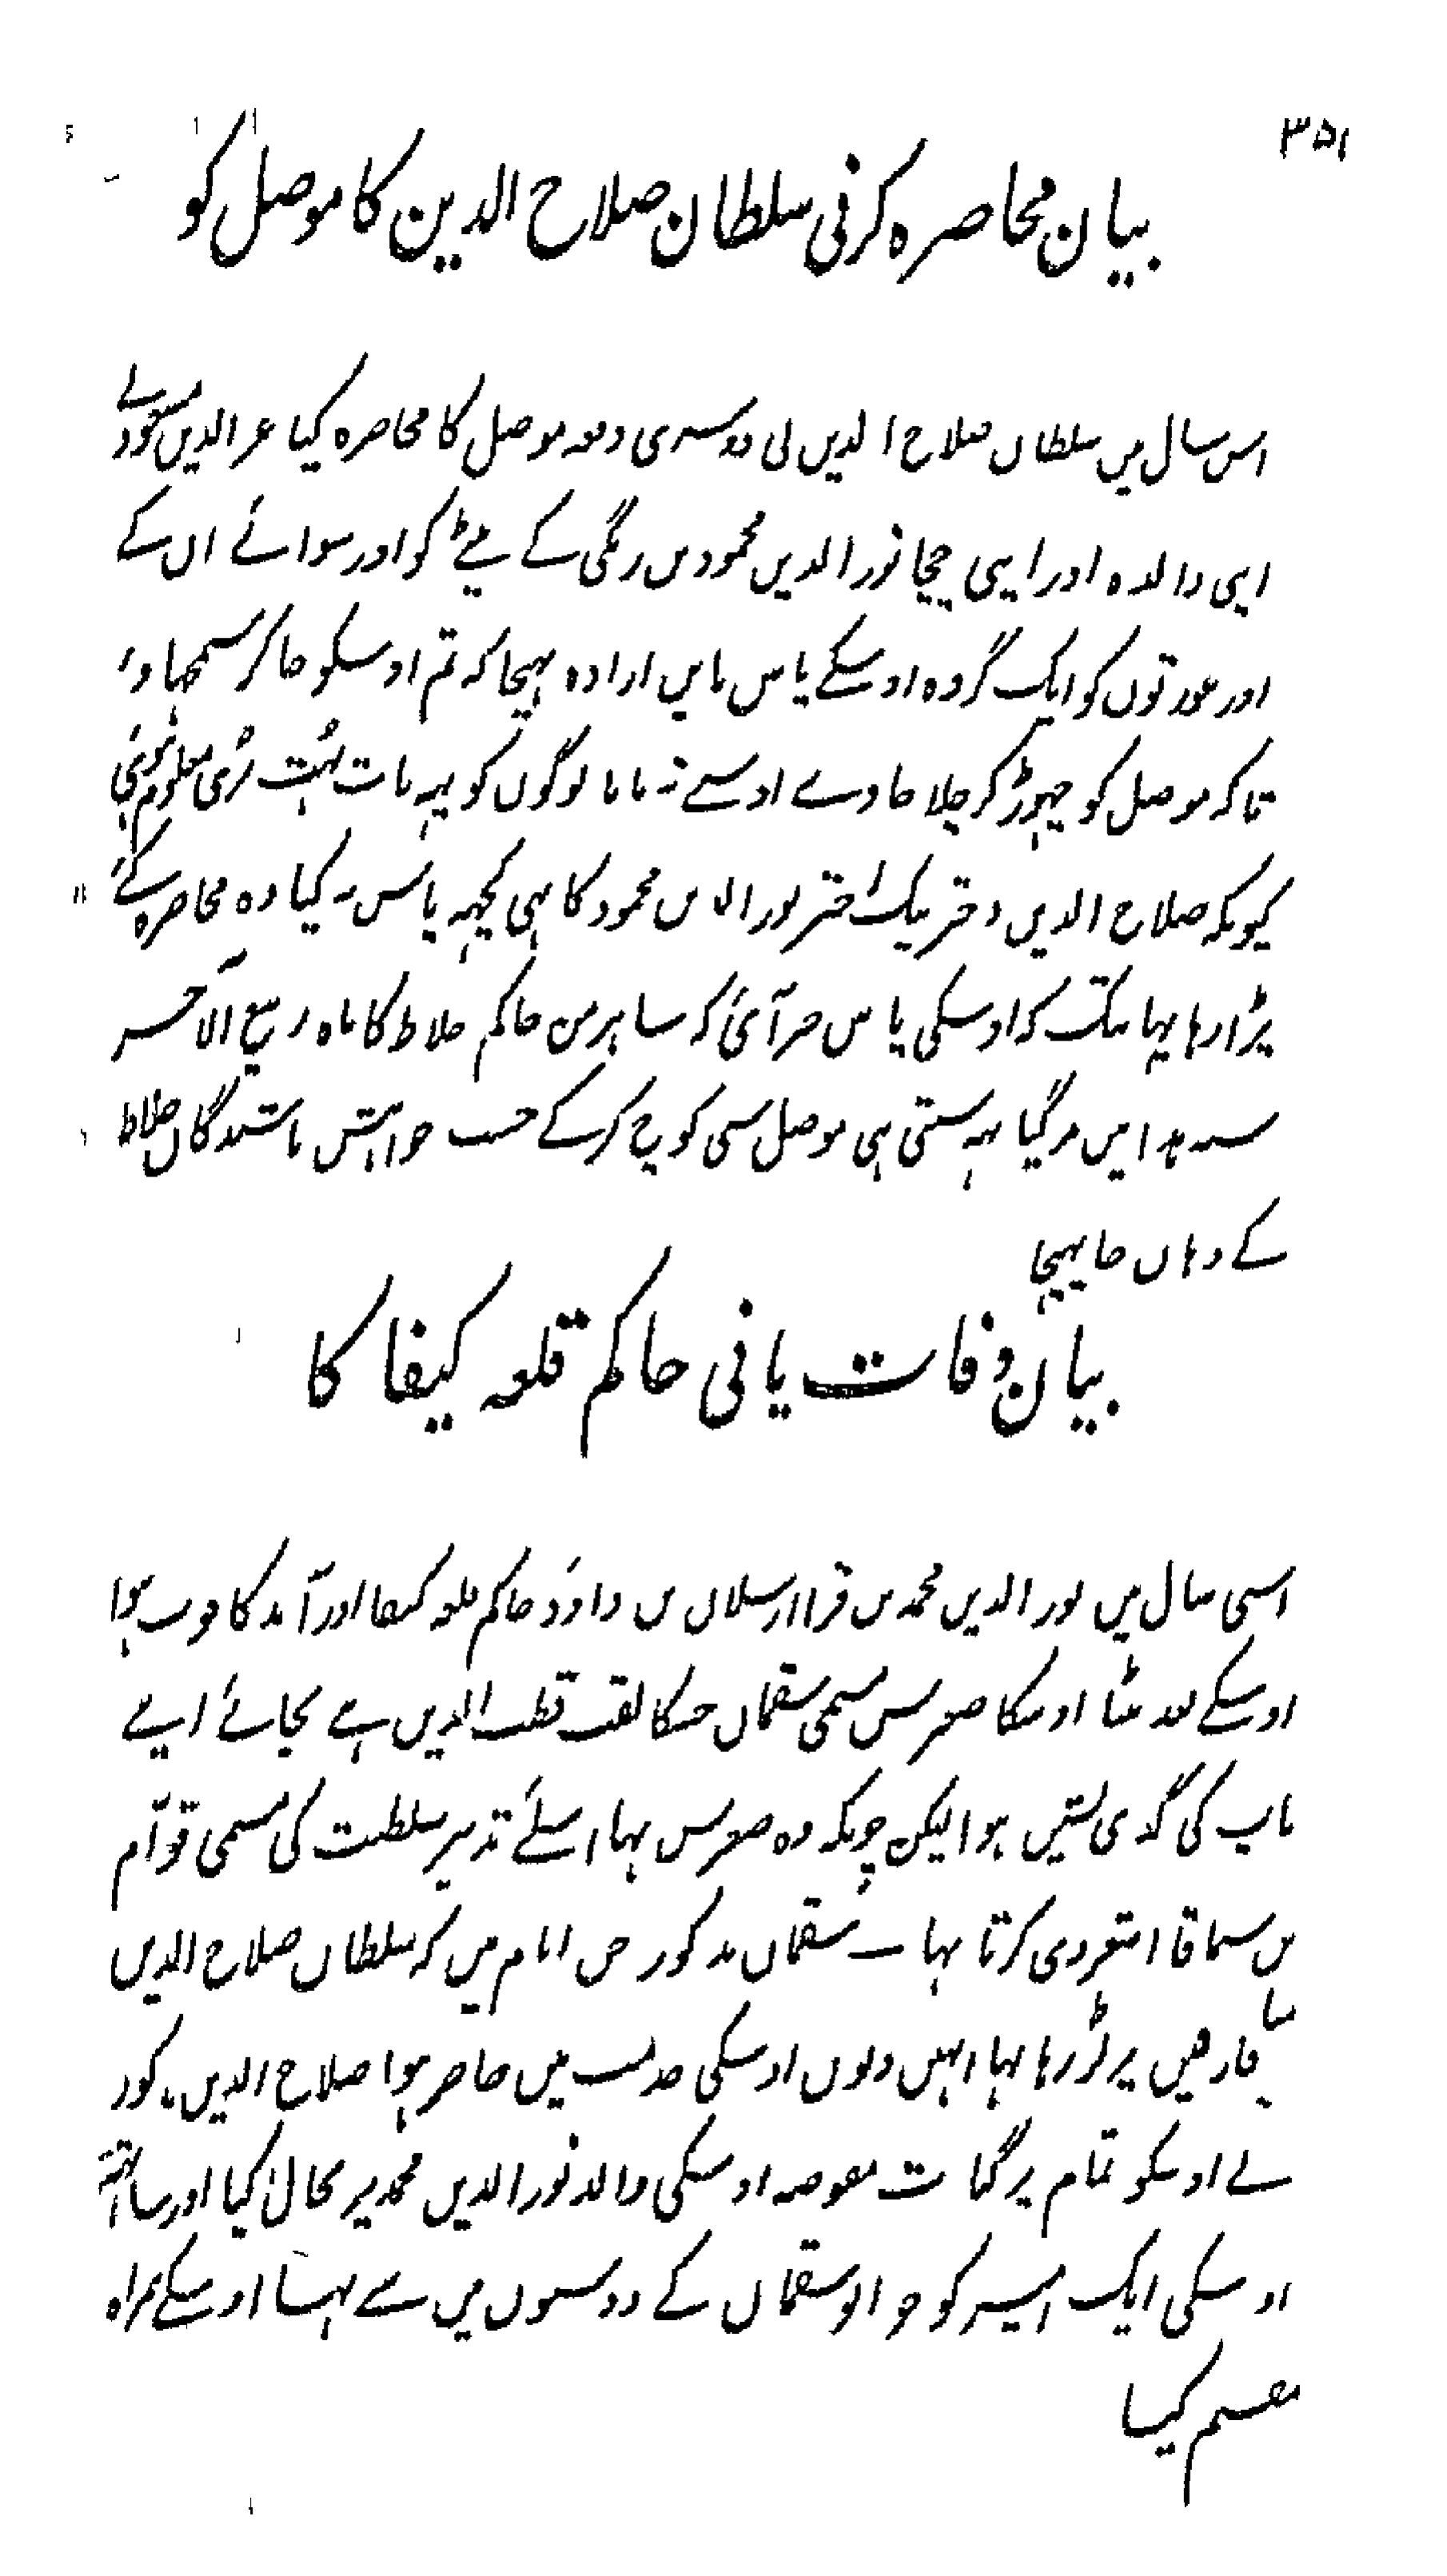 ۳۵۱
بیان محاصرہ کرنی سلطان صلاح الدین کا موصل کو
اس سال میں سلطان صلاح الدین نی دوسری دفعہ موصل کا محاصرہ کیا عز الدین مسعود نے
اپنی والدہ اور اپنی چچا نور الدین محمود بن زنگی کے بیٹے کو اور سوائے ان کے
اور عورتوں کو ایک گروہ اوسکے پاس باین ارادہ بہیجا کہ تم اوسکو جا کر سمجہاؤ
تاکہ موصل کو چہوڑ کر چلا جاوے اوسنے نہ مانا لوگوں کو یہہ بات بہت بڑی معلوم ہوئی
کیونکہ صلاح الدین دختر نیک اختر نور الدین محمود کا بہی کچہہ پاس نہ کیا وہ محاصرہ کئے
پڑا رہا یہانتک کہ اوسکی پاس خبر آئی کہ ساہرمن حاکم خلاط کا ماہ ربیع الآخر
سنہ ہذا میں مرگیا یہہ سنتی ہی موصل سی کوچ کرکے حسب خواہش باشندگان خلاط
کے وہاں جا پہنچا
بیان وفات پانی حاکم قلعہ کیفا کا
اسی سال میں نور الدین محمد بن قرا ارسلان بن داؤد حاکم قلعہ کیفا اور آمد کا فوت ہوا
اوسکے بعد بیٹا اوسکا صغر سن مسمی سقمان جسکا لقب قطب الدین ہے بجائے اپنے
باپ کی گدی نشین ہوا لیکن چونکہ وہ صغر سن تہا اسلئے تدبیر سلطنت کی مسمی قوّام
بن سماقا اسعردی کرتا تہا ۔ سقمان مذکور جن ایام میں کہ سلطان صلاح الدین
میافارقین پر لڑ رہا تہا انہیں دنوں اوسکی خدمت میں حاضر ہوا صلاح الدین مذکور
نے اوسکو تمام پرگنات مفوضہ اوسکی والد نور الدین محمد پر بحال کیا اور ساتہہ
اوسکی ایک امیر کو جو ابو سقمان کے دوستوں میں سے تہا اوسکے ہمراہ
کیا